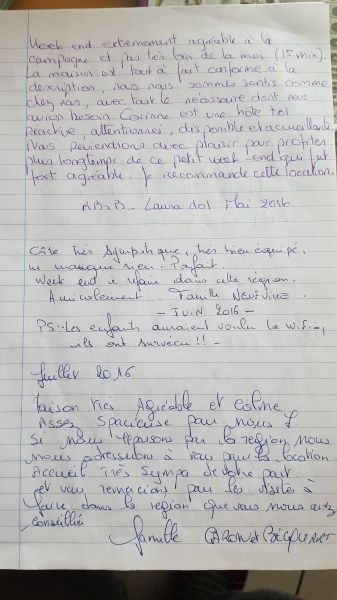 Week end extrêmement agréable à la
campagne et pas très loin de la mer (15 min).
La maison est tout à fait conforme à la
description, nous nous sommes sentis comme
chez nous, avec tout le nécessaire dont nous
avions besoin. Corinne est une hôte très
réactive, attentionnée, disponible et accueillante.
Nous reviendrons avec plaisir pour profiter
plus longtemps de ce petit week-end qui fut
fort agréable. Je recommande cette location.
Laura Mai 2016.
Gîte très sympathique, très bien équipé,
ne manque rien. Parfait.
Week end à refaire dans cette région.
Amicalement. Famille
- JUIN 2016 -
PS:- Les enfants auraient voulu le wifi -,
ils ont survécu !! -
Juillet 2016
Maison très Agréable et calme
Assez Spacieuse pour nous 7.
Si nous repassons par la région nous
nous adresserons à vous pour la location
Accueil Très Sympa de votre part
et vous remercions pour les visites à
faire dans la région que vous nous avez
conseillés
famille CARON